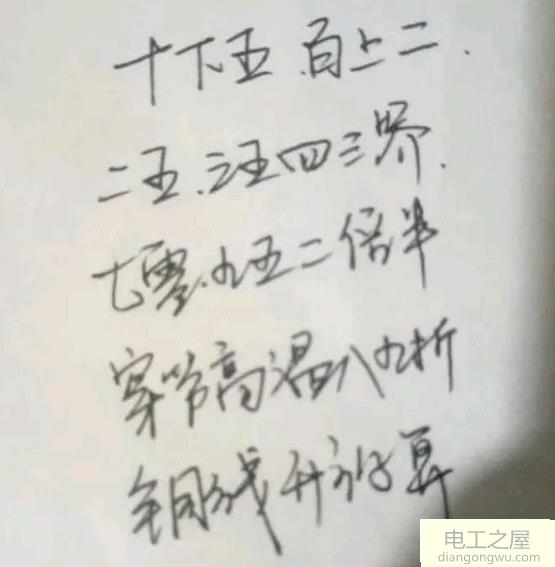 十下五.百上二.
二五.三五四三界.
七零.九五二倍半
穿管高温八九折
铜线升级算
电工之屋
diangongwu.com